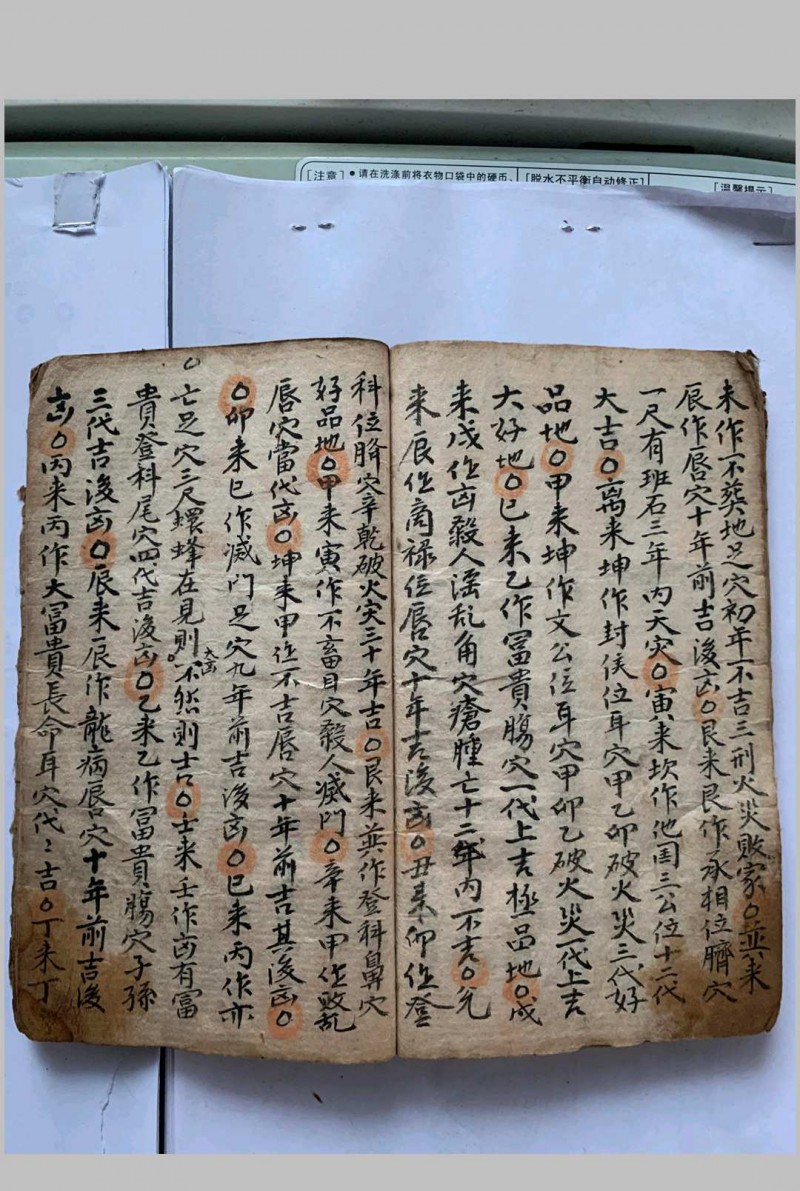 [注意] •请在洗涤前将衣物口袋中的硬币、
[脱水不平衡自动修正]
[温馨提示]
未作一不葵地足穴初年不吉三刑火災敗家〇巽来
辰作唇穴十年前吉後凶〇艮来艮作承相位臍穴
一尺有班石三年内天灾〇寅来坎作他国三公位十二代
大吉〇离来坤作封侯位耳穴甲乙卯破火災三代好
品地〇甲来坤作文公位耳穴甲卯乙破火災一代上吉
大好地〇巳来乙作冨貴腸穴一代上吉極品地〇戍
来戍作凶殺人滛乱角穴瘡腫亡十二年内不吉〇兊
来辰作商禄位唇穴十年吉後凶〇丑来卯作登
科位臍穴辛乾破火灾三十年吉〇艮来巽作登科鼻穴
好品地〇甲来寅作不畜目穴殺人㓕門〇辛来甲作敗乱
唇穴當代凶〇坤来甲作不吉唇穴十年前吉其後凶〇
〇卯来巳作㓕門足穴九年前吉後凶〇巳来丙作亦
亡足穴三尺螺蜂在見則大凶不然則吉〇壬来壬作凶有冨
貴登科尾穴四代吉後凶〇乙来乙作冨貴腸穴子孫
三代吉後凶〇辰来辰作龍病唇穴十年前吉後
凶〇丙来丙作大冨貴長命耳穴代〻吉〇丁来丁